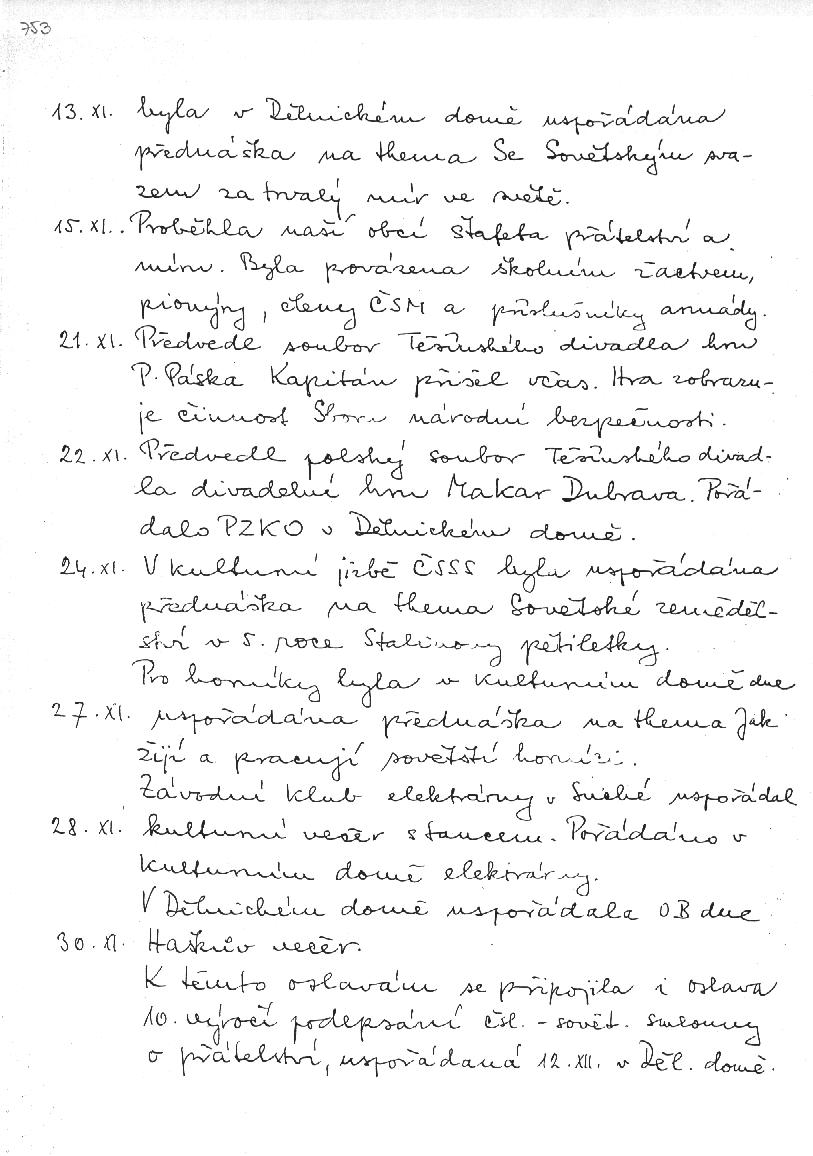 753
13. XI. byla v Dělnickém domě uspořádána
přednáška na thema Se Sovětským sva-
zem za trvalý mír ve světě.
15. XI. Proběhla naší obcí štafeta přátelství a
míru. Byla provázena školním žactvem,
pionýry, členy ČSM a příslušníky armády.
21. XI. Předvedl soubor Těšínského divadla hru
P. Páska Kapitán přišel včas. Hra zobrazu-
je činnost Sboru národní bezpečnosti.
22. XI. Předvedl polský soubor Těšínského divad-
la divadelní hru Makar Dubrava. Pořá-
dalo PZKO v Dělnickém domě.
24. XI. V kulturní jizbě ČSSS byla uspořádána
přednáška na thema Sovětské zeměděl-
ství v 5. roce Stalinovy pětiletky.
Pro horníky byla v kulturním domě dne
27. XI. uspořádána přednáška na thema Jak
žijí a pracují sovětští horníci.
Závodní klub elektrárny v Suché uspořádal
28. XI. kulturní večer s tancem. Pořádáno v
kulturním domě elektrárny.
V Dělnickém domě uspořádala OB dne
30. XI. Haškův večer.
K těmto oslavám se připojila i oslava
10. výročí podepsání čsl. - sovět. smlouvy
o přátelství, uspořádaná 12. XII. v Děl. domě.